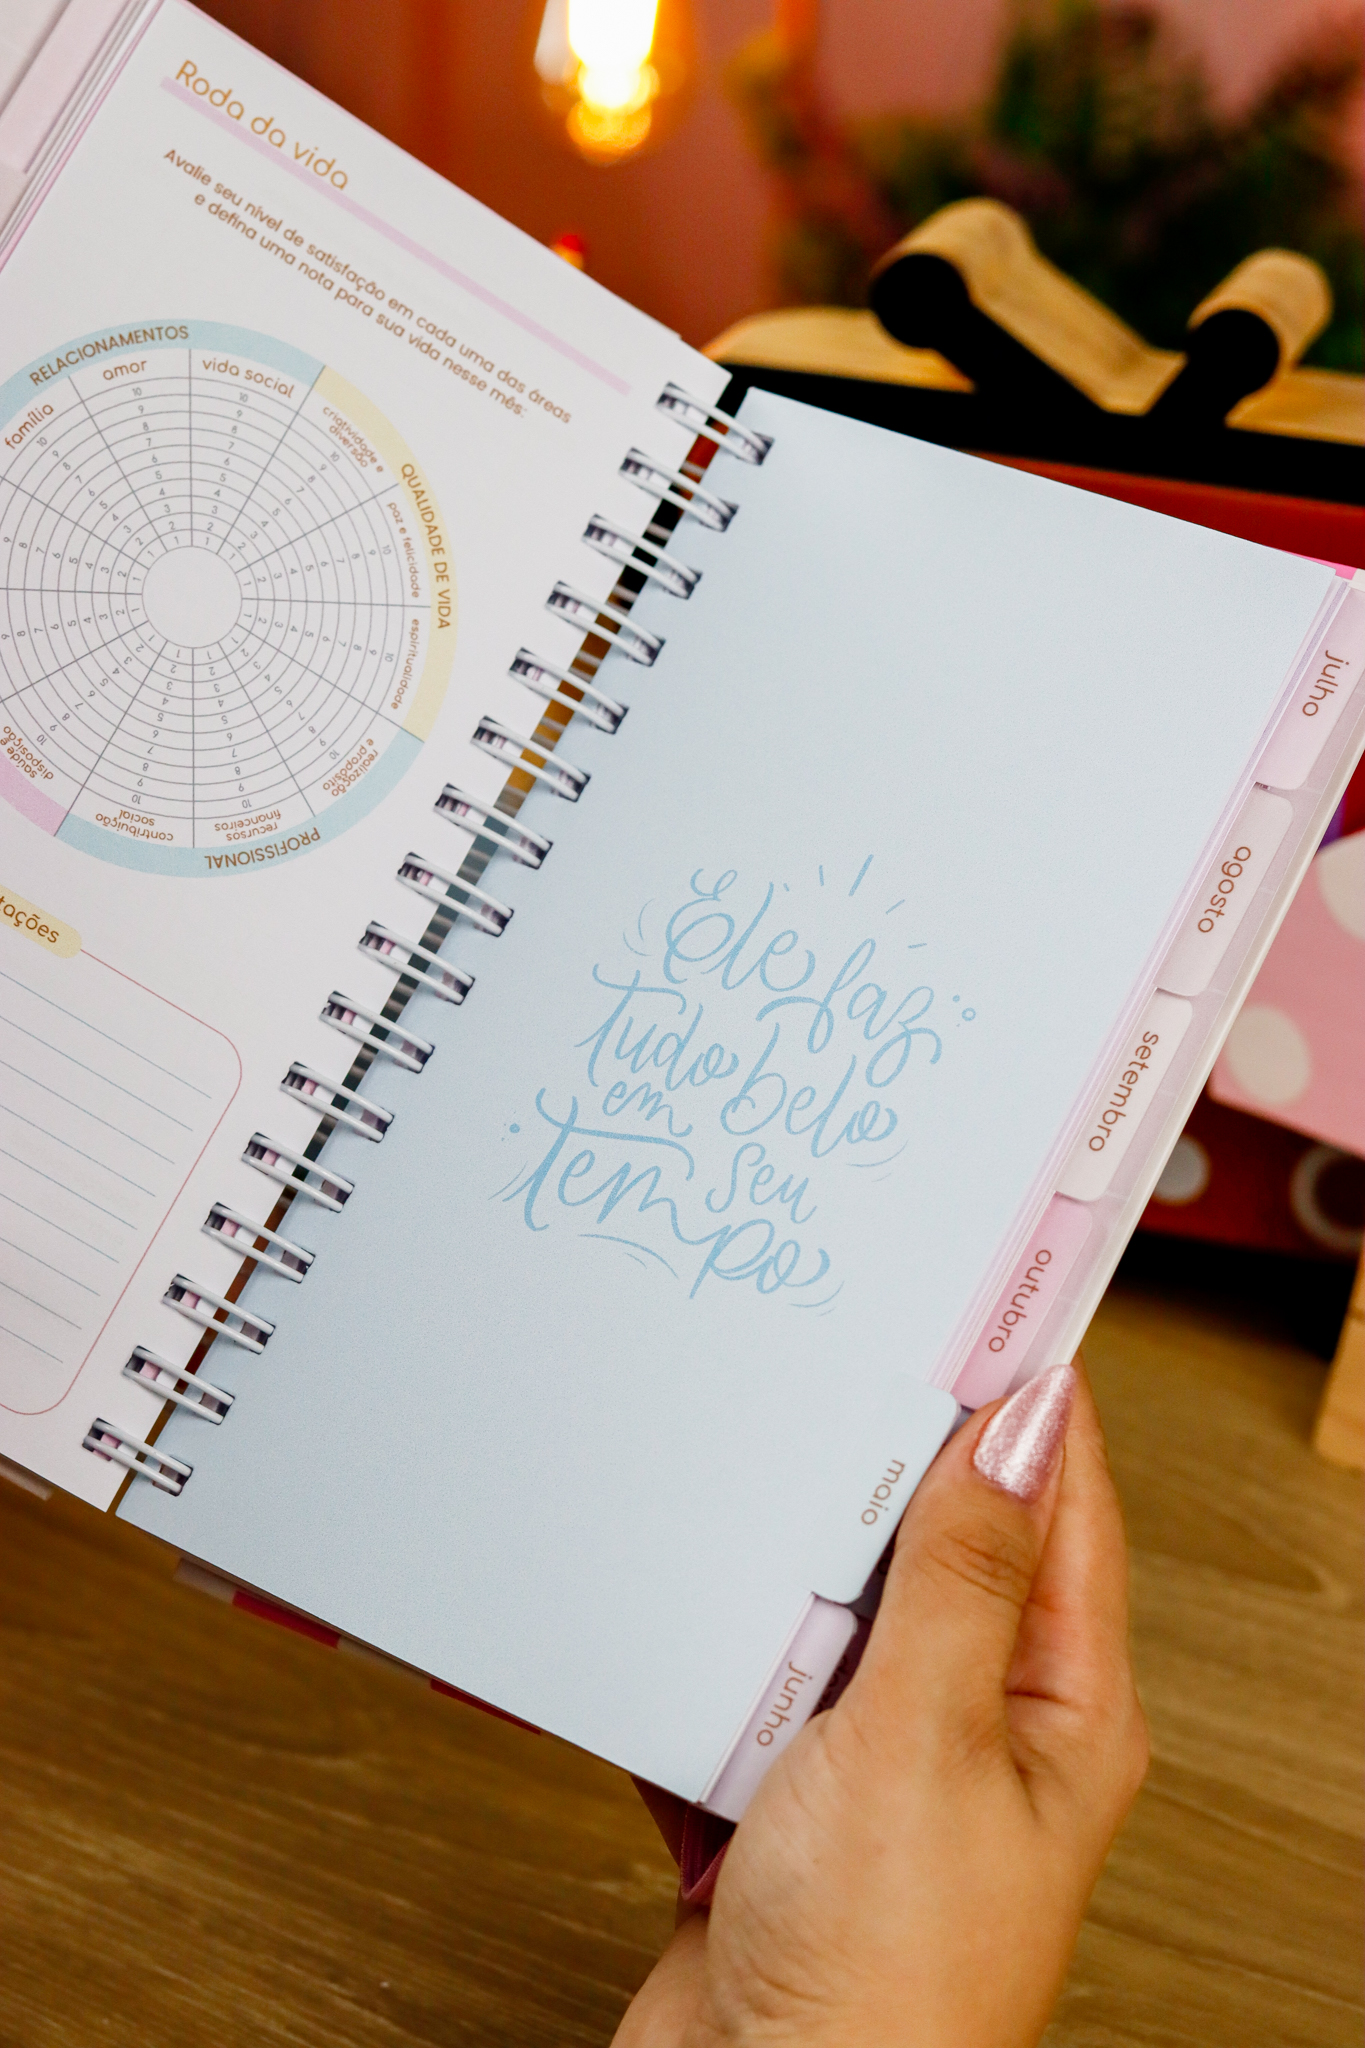 Roda da vida
Avalie seu nível de satisfação em cada uma das áreas
e defina uma nota para sua vida nesse mês:
RELACIONAMENTOS
família
amor
vida social
QUALIDADE DE VIDA
criatividade e
diversão
paz e felicidade
espiritualidade
PROFISSIONAL
realização
e propósito
recursos
financeiros
contribuição
social
saúde e
disposição
10 9 8 7 6 5 4 3 2 1
tações
Ele faz
tudo belo
em seu
tempo
julho
agosto
setembro
outubro
maio
junho